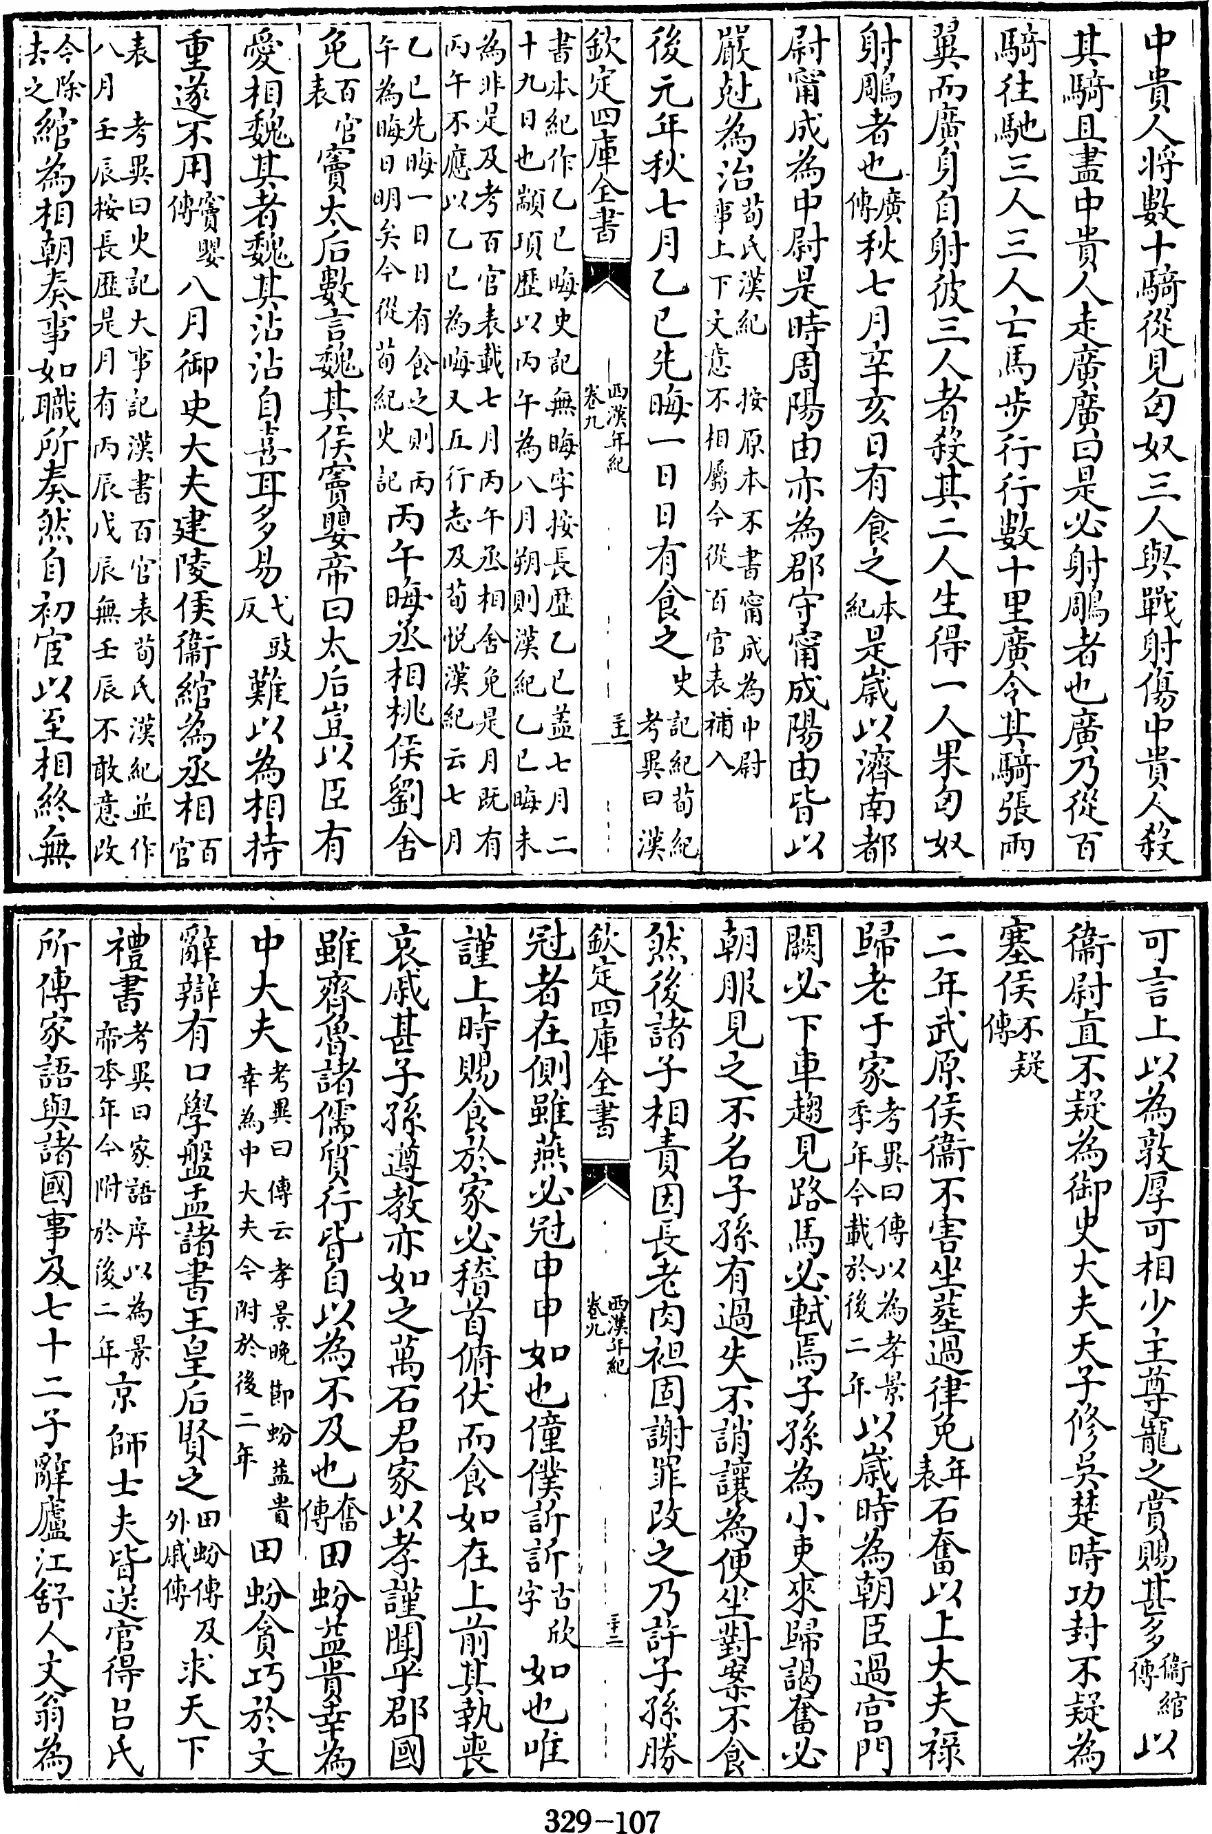 中貴人将數十騎從見匈奴三人與戰射傷中貴人殺
其騎且盡中貴人走廣廣曰是必射鵰者也廣乃從百
騎往馳三人三人亡馬步行行數十里廣令其騎張兩
翼而廣身自射彼三人者殺其二人生得一人果匈奴
射鵰者也廣傳秋七月辛亥日有食之本紀是嵗以濟南都
尉甯成為中尉是時周陽由亦為郡守甯成陽由皆以
嚴尅為治荀氏漢紀 按原本不書甯成為中尉事上下文意不相屬今從百官表補入
後元年秋七月乙巳先晦一日日有食之史記紀荀紀考異曰漢
欽定四庫全書
西漢年紀
卷九
二十一
書本紀作乙巳晦史記無晦字按長歴乙巳蓋七月二
十九日也顓頊歴以丙午為八月朔則漢紀乙巳晦未
為非是及考百官表載七月丙午丞相舍免是月既有
丙午不應以乙巳為晦又五行志及荀悦漢紀云七月
乙巳先晦一日日有食之則丙午為晦日明矣今從荀紀史記丙午晦丞相桃侯劉舍
免百官表竇太后數言魏其侯竇嬰帝曰太后豈以臣有
愛相魏其者魏其沾沾自喜耳多易弋豉反難以為相持
重遂不用竇嬰傳八月御史大夫建陵侯衞綰為丞相百官
表 考異曰史記大事記漢書百官表荀氏漢紀並作
八月壬辰按長歴是月有丙辰戊辰無壬辰不敢意改
今除去之綰為相朝奏事如職所奏然自初宦以至相終無
可言上以為敦厚可相少主尊寵之賞賜甚多衞綰傳以
衞尉直不疑為御史大夫天子修吳楚時功封不疑為
塞侯不疑傳
二年武原侯衞不害坐塟過律免年表石奮以上大夫禄
歸老于家考異曰傳以為孝景季年今載於後二年以嵗時為朝臣過宫門
闕必下車趨見路馬必軾焉子孫為小吏來歸謁奮必
朝服見之不名子孫有過失不誚讓為便坐對案不食
然後諸子相責因長老肉袒固謝罪改之乃許子孫勝
欽定四庫全書
西漢年紀
卷九
二十二
冠者在側雖燕必冠申申如也僮僕訢訢古欣字如也唯
謹上時賜食於家必稽首俯伏而食如在上前其執喪
哀戚甚子孫遵教亦如之萬石君家以孝謹聞乎郡國
雖齊魯諸儒質行皆自以為不及也奮傳田蚡益貴幸為
中大夫考異曰傳云孝景晚節蚡益貴幸為中大夫今附於後二年田蚡貪巧於文
辭辯有口學盤盂諸書王皇后賢之田蚡傳及外戚傳求天下
禮書考異曰家語序以為景帝季年今附於後二年京師士夫皆送官得吕氏
所傳家語與諸國事及七十二子辭廬江舒人文翁為
329-107